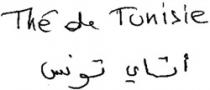 Thé de Tunisie
أتاي تونس